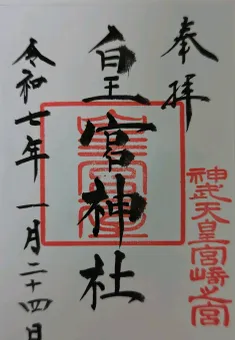 奉拝
皇宮神社
神武天皇宮崎之宮
令和七年一月二十四日